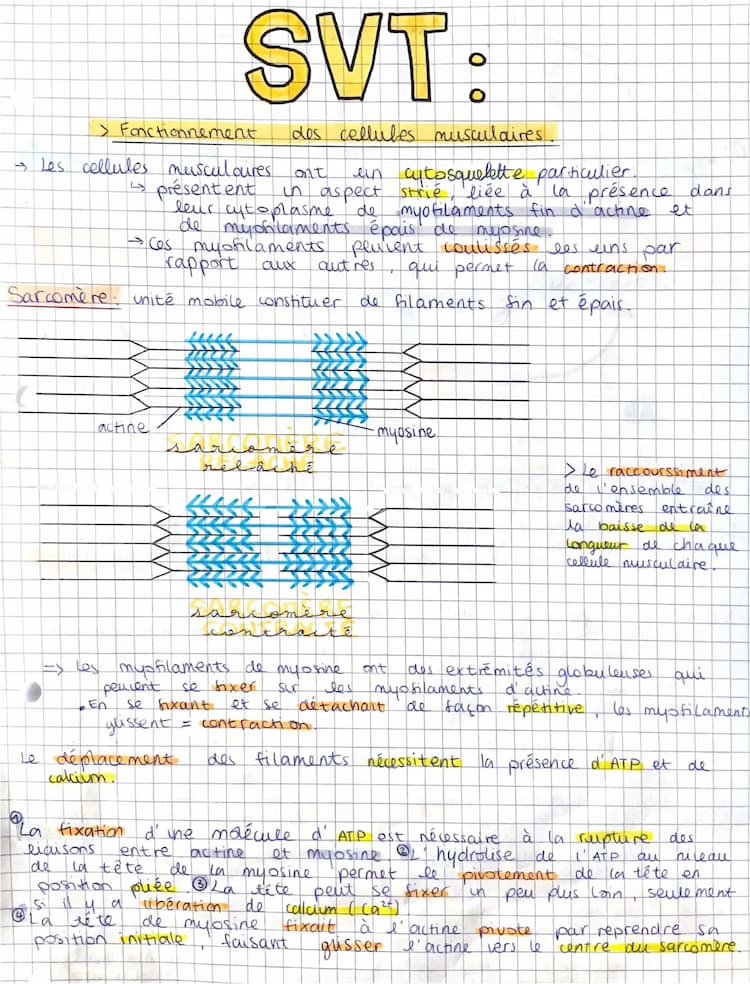 SVT:
> Fonctionnement des cellules musculaires.
→ Les cellules musculaires ont un cytosquelette particulier.
↳ présentent un aspect strié, liée à la présence dans
leur cytoplasme de myofilaments fin d'actine et
de myofilaments épais de myosine.
→ Ces myofilaments peuvent coulissés les uns par
rapport aux autres, qui permet la contraction.
Sarcomère: unité mobile constituer de filaments fin et épais.
actine
myosine
SARCOMÈRE
sarcomère
RELÂCHÉ
relâché
> Le raccourssiment
de l'ensemble des
sarcomères entraîne
la baisse de la
longueur de chaque
cellule musculaire.
SARCOMÈRE
sarcomère
CONTRACTÉ
contracté
=> Les myofilaments de myosine ont des extrémités globuleuses qui
peuvent se fixer sur les myofilaments d'actine.
• En se fixant et se détachait de façon répétitive, les myofilament
glissent = contraction.
Le déplacement des filaments nécessitent la présence d'ATP et de
calcium.
① La fixation d'une molécule d'ATP est nécessaire à la rupture des
liaisons entre actine et myosine ② L'hydrolise de l'ATP au niveau
de la tête de la myosine permet le pivotement de la tête en
position pliée ③ La tête peut se fixer un peu plus loin, seulement
si il y a libération de calcium (Ca²⁺)
④ La tête de myosine fixait à l'actine pivote par reprendre sa
position initiale, faisant glisser l'actine vers le centre du sarcomère.